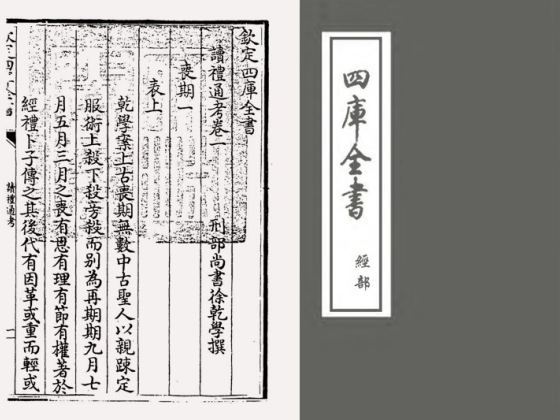 欽定四庫全書
讀禮通考卷一
刑部尚書徐乾學撰
喪期一
表上
乾學案上古喪期無數中古聖人以親踈定
服術上殺下殺旁殺而别為再期期九月七
月五月三月之喪有恩有理有節有權著於
經禮卜子傳之其後代有因革或重而輕或
讀禮通考
一
四庫全書
經部